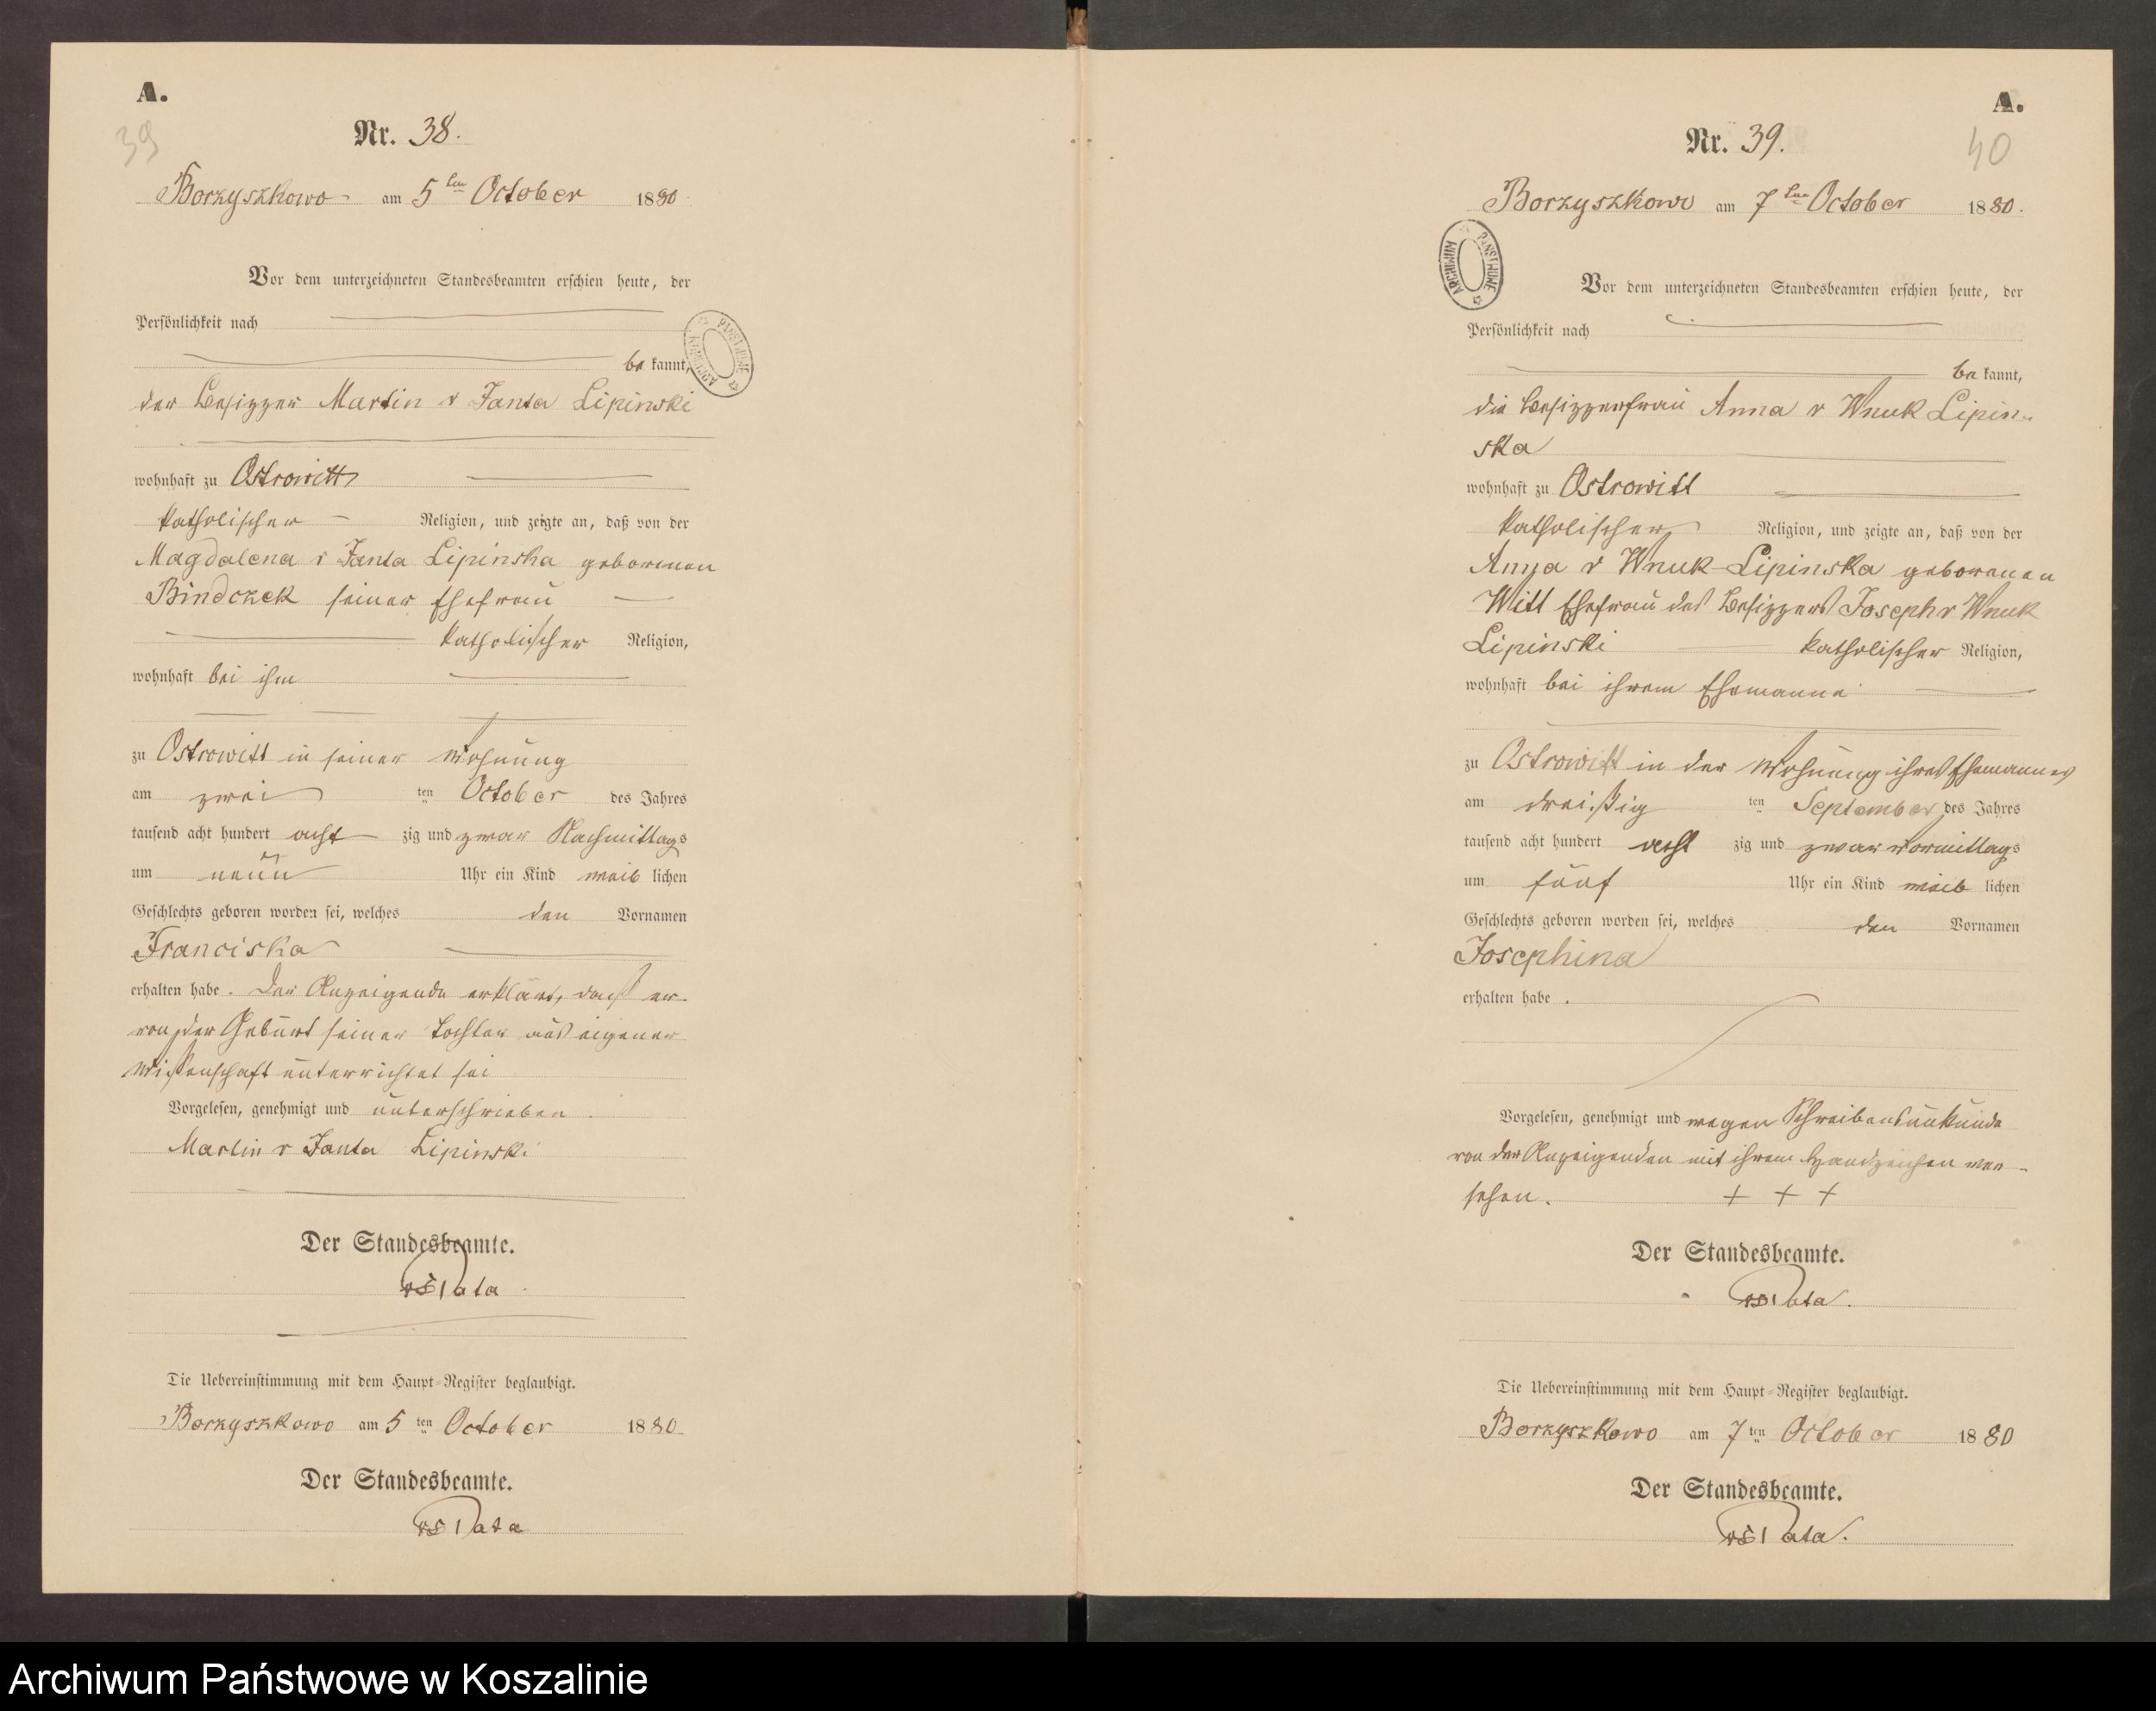 A.
39
Nr. 38.
Borzyszkowo am 5ten October 1880.
Vor dem unterzeichneten Standesbeamten erschien heute, der
Persönlichkeit nach
be kannt,
der Besizzer Martin v Janta Lipinski
wohnhaft zu Ostrowitt
katholischer Religion, und zeigte an, daß von der
Magdalena v Janta Lipinska geborenen
Bindczek seiner Ehefrau
katholischer Religion,
wohnhaft bei ihm
zu Ostrowitt in seiner Wohnung
am zwei ten October des Jahres
tausend acht hundert acht zig und zwar Nachmittags
um neun Uhr ein Kind weib lichen
Geschlechts geboren worden sei, welches den Vornamen
Franciska
erhalten habe. Der Anzeigende erklärt, daß er
von der Geburt seiner Tochter aus eigener
Wissenschaft unterrichtet sei
Vorgelesen, genehmigt und unterschrieben.
Martin v Janta Lipinski
Der Standesbeamte.
Die Uebereinstimmung mit dem Haupt-Register beglaubigt.
Borzyszkowo am 5 ten October 1880.
Der Standesbeamte.
A.
40
Nr. 39.
Borzyszkowo am 7ten October 1880.
ARCHIWUM PAŃSTWOWE
Vor dem unterzeichneten Standesbeamten erschien heute, der
Persönlichkeit nach
be kannt,
die Besizzerfrau Anna v Wnuk Lipin-
ska
wohnhaft zu Ostrowitt
katholischer Religion, und zeigte an, daß von der
Anna v Wnuk-Lipinska geborenen
Witt Ehefrau des Besizzers Joseph v Wnuk
Lipinski katholischer Religion,
wohnhaft bei ihrem Ehemanne
zu Ostrowitt in der Wohnung ihres Ehemannes
am dreißig ten September des Jahres
tausend acht hundert acht zig und zwar Vormittags
um fünf Uhr ein Kind weib lichen
Geschlechts geboren worden sei, welches den Vornamen
Josephina
erhalten habe.
Vorgelesen, genehmigt und wegen Schreibensunkunde
von der Anzeigenden mit ihrem Handzeichen ver-
sehen. + + +
Der Standesbeamte.
Die Uebereinstimmung mit dem Haupt-Register beglaubigt.
Borzyszkowo am 7 ten October 1880
Der Standesbeamte.
Archiwum Państwowe w Koszalinie